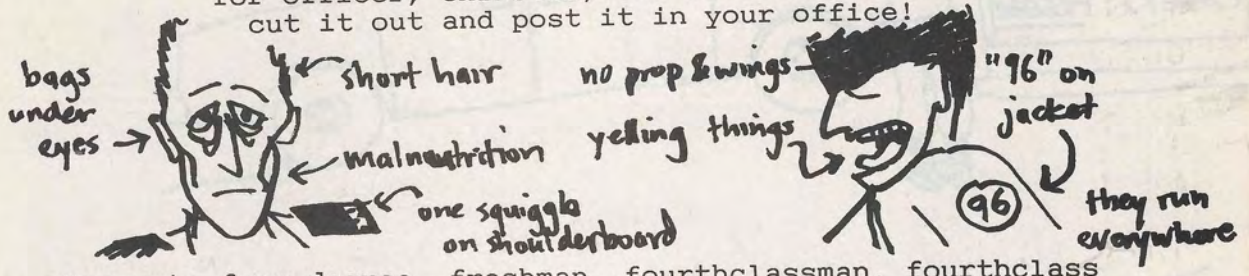 cut it out and post it in your office!
bags
under
eyes
short hair
malnutrition
one squiggle
on shoulderboard
no prop & wings
yelling things
"96" on
jacket
96
they run
everywhere
freshman, fourthclassman, fourthclass